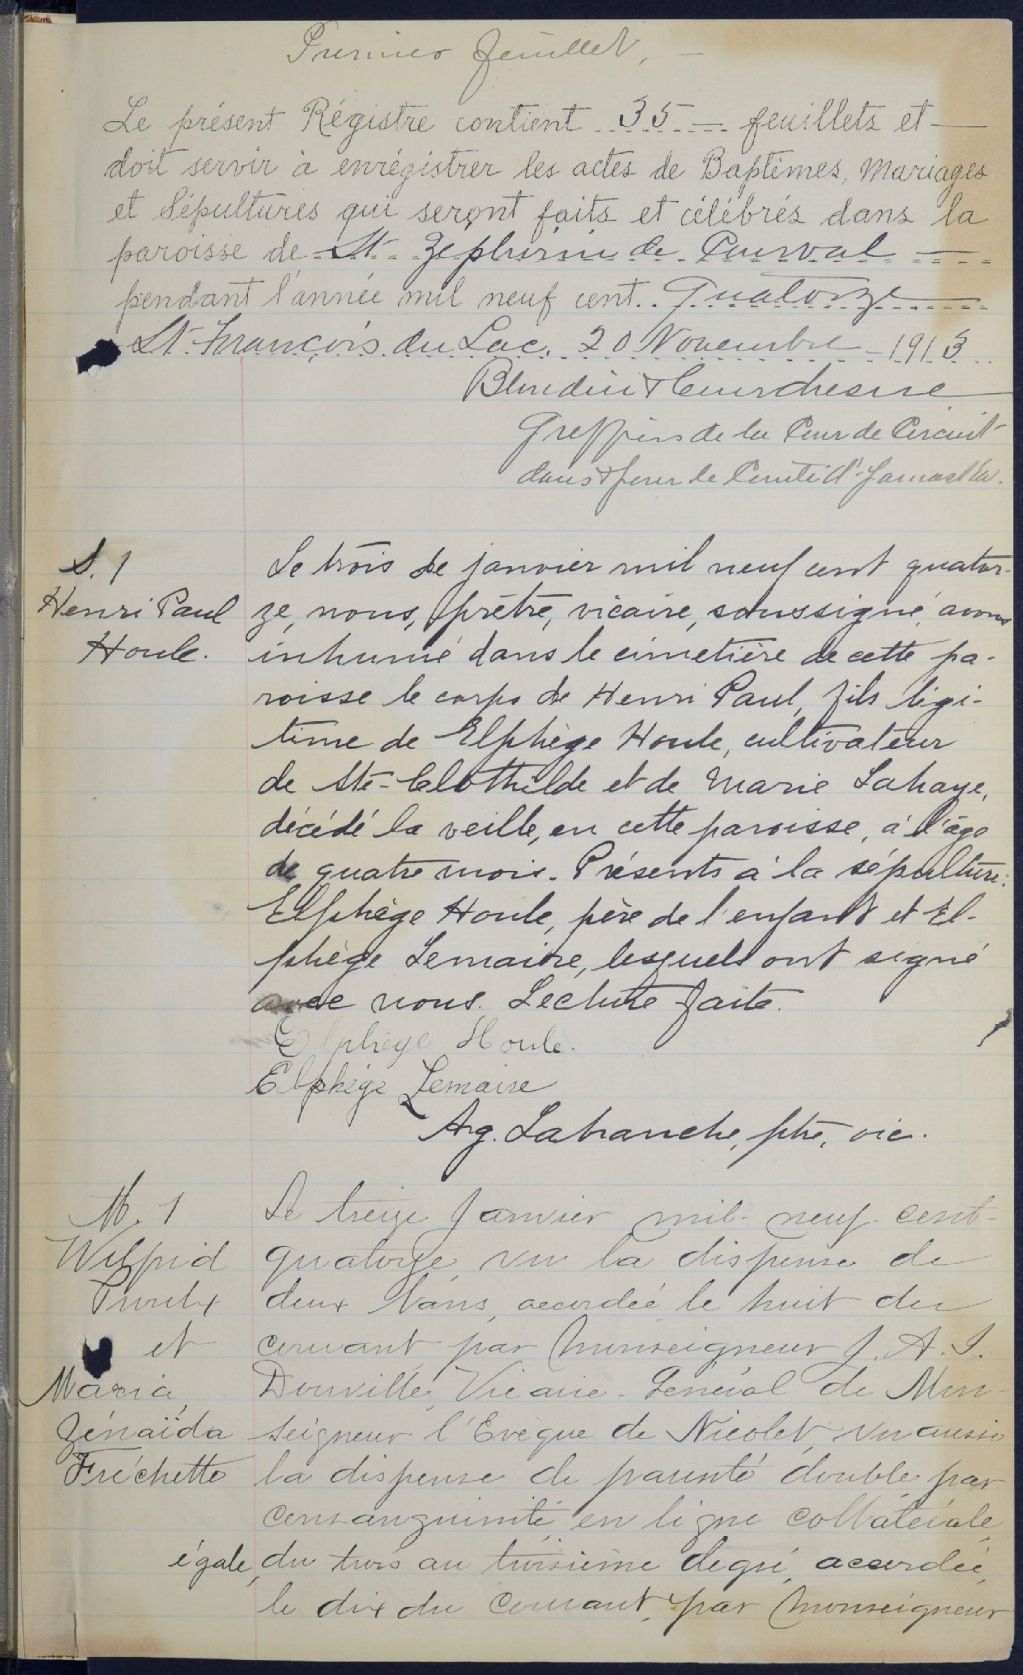 Premier feuillet, —
Le présent Régistre contient 35 — feuillets et —
doit servir à enrégistrer les actes de Baptêmes, Mariages
et Sépultures qui seront faits et célébrés dans la
paroisse de St Zéphirin de Courval —
pendant l'année mil neuf cent Quatorze —
St-François du Lac, 20 Novembre - 1913
Blondin & Courchesne
Greffiers de la Cour de Circuit
dans & pour le Comté d'Yamaska.
S. 1
Henri Paul
Houle.
Le trois de janvier mil neuf cent quator-
ze, nous, prêtre, vicaire, soussigné, avons
inhumé dans le cimetière de cette pa-
roisse le corps de Henri Paul, fils légi-
time de Elphège Houle, cultivateur
de Ste-Clothilde et de Marie Lahaye,
décédé la veille, en cette paroisse, à l'âge
de quatre mois. Présents à la sépulture:
Elphège Houle, père de l'enfant et El-
phège Lemaire, lesquels ont signé
avec nous. Lecture faite.
Elphège Houle.
Elphège Lemaire
Arg. Lahanche, ptre, vic.
M. 1
Wilfrid
Proulx
et
Maria
Zénaïda
Fréchette
Le treize Janvier mil-neuf-cent-
quatorze, vu la dispense de
deux bans, accordée le huit du
courant par Monseigneur J. A. I.
Douville, Vicaire-Général de Mon-
seigneur l'Evêque de Nicolet, vu aussi
la dispense de parenté double par
consanguinité, en ligne collatérale
égale, du trois au troisième degré, accordée,
le dix du courant, par Monseigneur